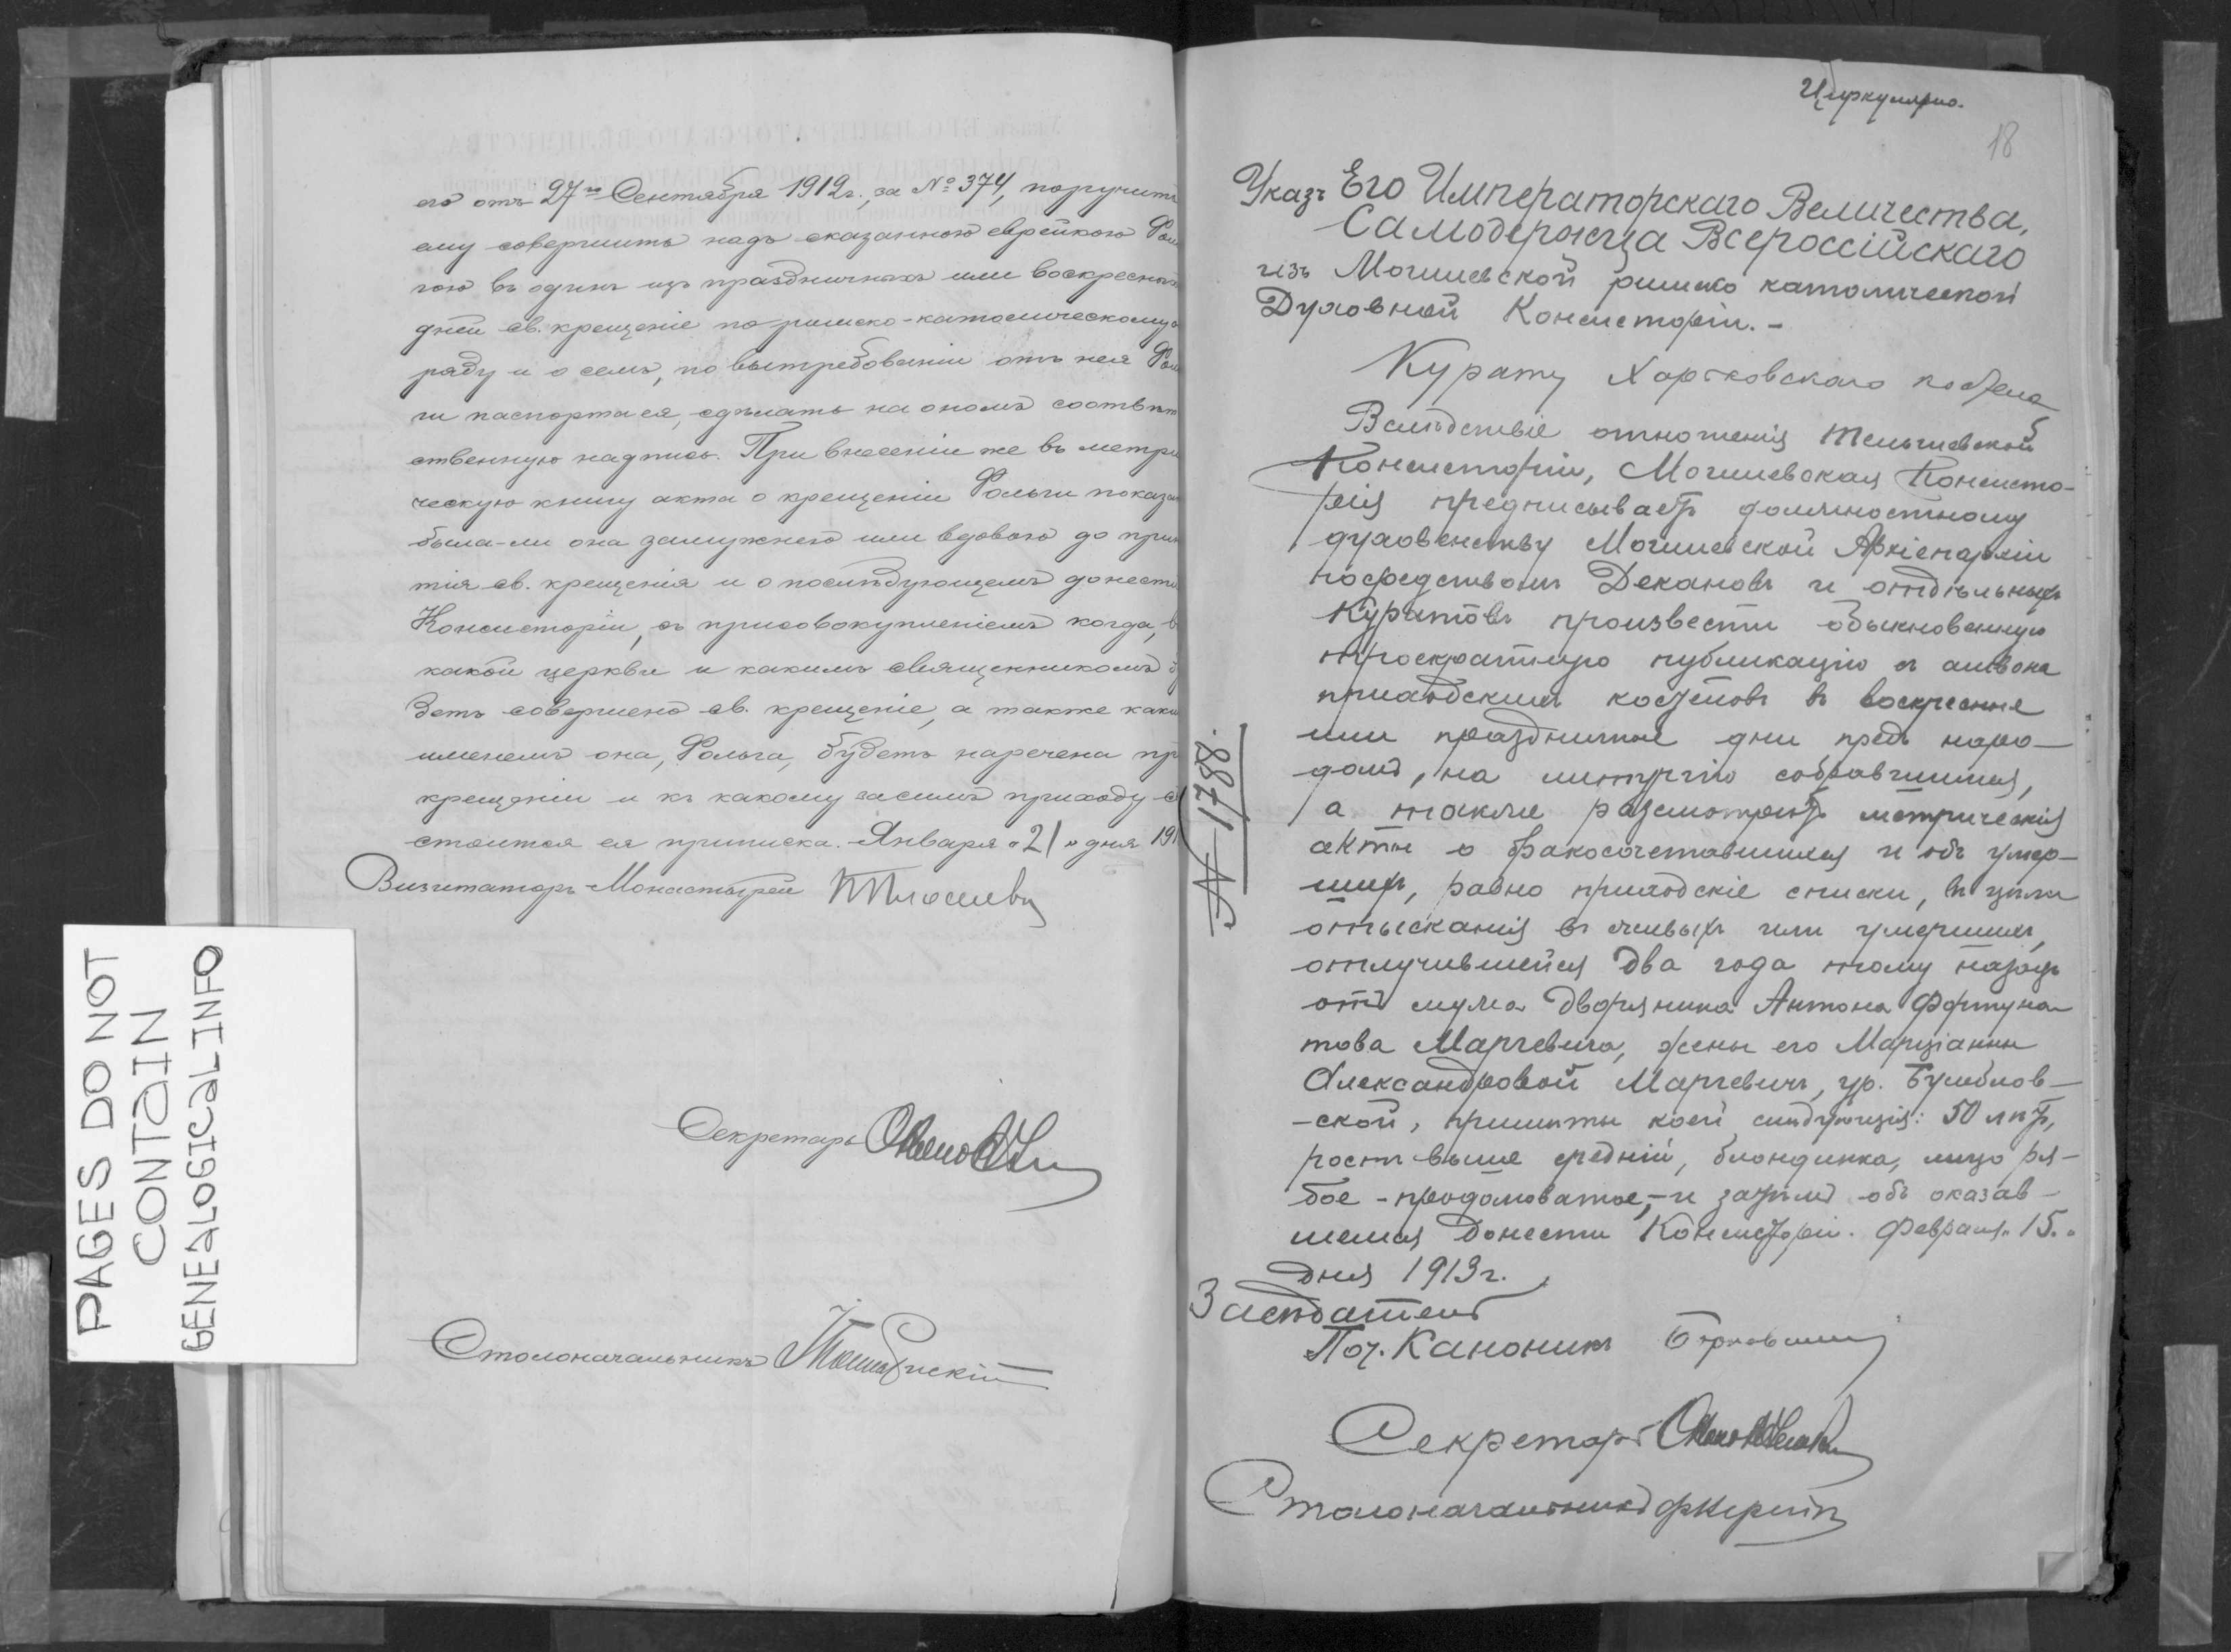 его отъ 27го Сентября 1912г., за № 374, поручить
ему совершить надъ сказанною еврейкою Фол
гою въ одинъ изъ праздничныхъ или воскресных
дней св. крещеніе по римско-католическому об
ряду и о семъ, по вытребованіи отъ нея Фол
ги паспорта ея, сдѣлать на ономъ соотвѣт
ственную надпись. При внесеніи же въ метри
ческую книгу акта о крещеніи Фольги показат
была-ли она замужнею или вдовою до приня
тія св. крещенія и о послѣдующемъ донести
Консисторіи, съ присовокупленіемъ когда, в
какой церкви и какимъ священникомъ бу
детъ совершено св. крещеніе, а также каки
именемъ она, Фольга, будетъ наречена пр
крещеніи и къ какому засимъ приходу со
стоится ея приписка. Января "21" дня 191
Визитаторъ Монастырей
Секретарь
Столоначальникъ
PAGES DO NOT
CONTAIN
GENEALOGICAL INFO
Циркулярно.
18
Указъ Его Императорскаго Величества,
Самодержца Всероссійскаго
изъ Могилевской римско католической
Духовной Консисторіи.-
Курату Харьковскаго костела
Вслѣдствіе отношенія Тельшевской
Консисторіи, Могилевская Консисто-
рія предписываетъ должностному
духовенству Могилевской Архіепархіи
посредствомъ Декановъ и отдѣльныхъ
Куратовъ произвести обыкновенную
троекратную публикацію съ амвона
приходскихъ костеловъ въ воскресные
или праздничные дни предъ наро-
домъ, на литургію собравшимся,
а также разсмотрѣть метрическія
акты о бракосочетавшихся и объ умер-
шихъ, равно приходскіе списки, въ цѣли
отысканія въ живыхъ или умершихъ,
отлучившейся два года тому назадъ
отъ мужа дворянина Антона Фортуна-
това Маргевича, жены его Марціанны
Александровой Маргевичъ, ур.
-ской, примѣты коей слѣдующія: 50 лѣтъ,
ростъ выше средній, блондинка, лицо ря-
бое - продолговатое, - и затѣмъ объ оказав-
шемся донести Консисторіи. Февраля "15"
дня 1913г.
№ 1788.
Засѣдатель
Поч. Каноникъ
Секретарь
Столоначальникъ